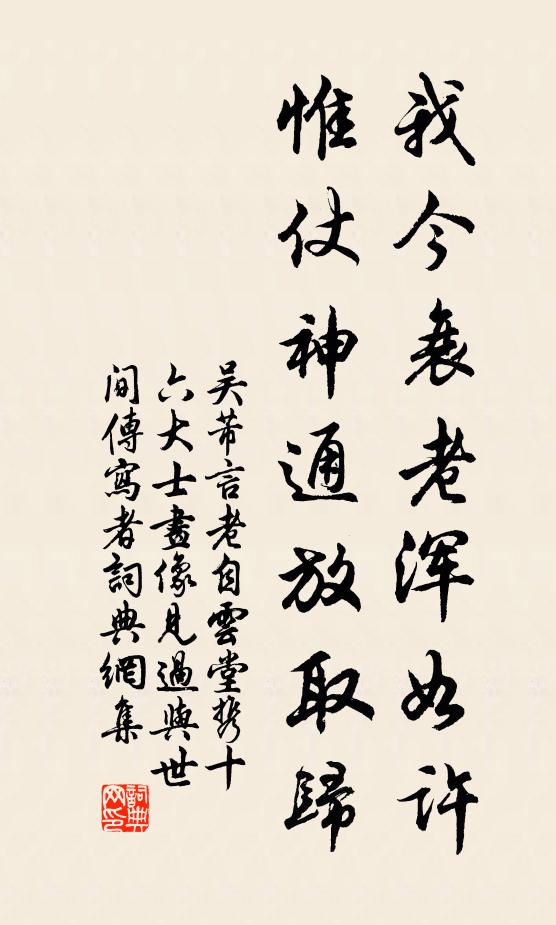 我今衰老浑如许
惟仗神通放取歸
吴芾言老自雲堂携十
六大士畫像見過與世
間傳寫者詞典網集
詞典网印